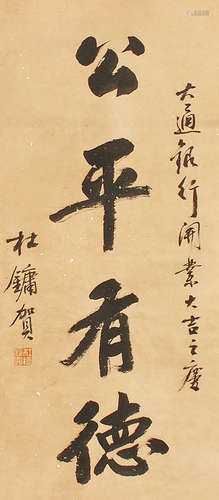 大通銀行開業大吉之慶
公平有德
杜鏞賀